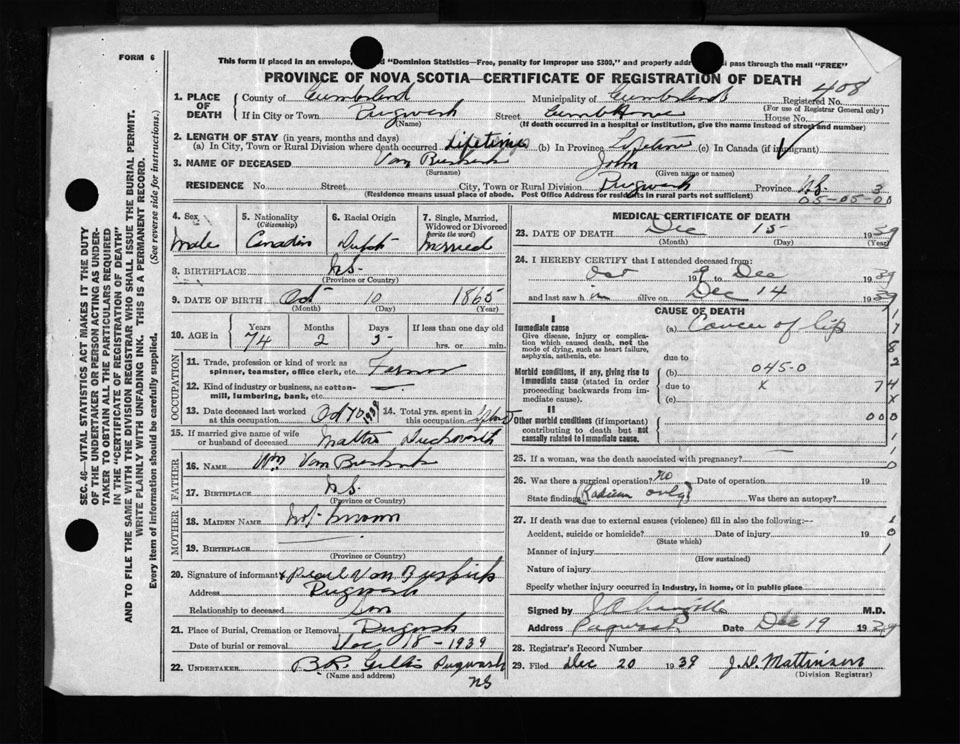 FORM 6
This form if placed in an envelope, "Dominion Statistics—Free, penalty for improper use $300," and properly pass through the mail "FREE"
PROVINCE OF NOVA SCOTIA—CERTIFICATE OF REGISTRATION OF DEATH
408
1. PLACE OF DEATH
County of Cumberland Municipality of Cumberland Registered No.
(For use of Registrar General only)
If in City or Town Pugwash Street House No.
(Name) (If death occurred in a hospital or institution, give the name instead of street and number)
2. LENGTH OF STAY (in years, months and days)
(a) In City, Town or Rural Division where death occurred Lifetime (b) In Province Lifetime (c) In Canada (if immigrant)
3. NAME OF DECEASED Van Buskirk John
(Surname) (Given name or names)
RESIDENCE No. Street City, Town or Rural Division Pugwash Province N.S. 3
(Residence means usual place of abode. Post Office Address for residents in rural parts not sufficient)
05-05-00
4. Sex Male
5. Nationality (Citizenship) Canadian
6. Racial Origin Dutch
7. Single, Married, Widowed or Divorced (write the word) Married
8. BIRTHPLACE N.S.
(Province or Country)
9. DATE OF BIRTH Oct 10 1865
(Month) (Day) (Year)
10. AGE in Years Months Days If less than one day old
74 2 5 hrs. or min.
OCCUPATION
11. Trade, profession or kind of work as spinner, teamster, office clerk, etc. Farmer
12. Kind of industry or business, as cotton-mill, lumbering, bank, etc. —
13. Date deceased last worked at this occupation Oct 10 1939
14. Total yrs. spent in this occupation
15. If married give name of wife or husband of deceased Duckworth
FATHER
16. NAME Wm Van Buskirk
17. BIRTHPLACE N.S.
(Province or Country)
MOTHER
18. MAIDEN NAME Not known
19. BIRTHPLACE
(Province or Country)
20. Signature of informant x Pearl Van Buskirk
Address Pugwash
Relationship to deceased Son
21. Place of Burial, Cremation or Removal Pugwash
Date of burial or removal Dec 18 - 1939
22. UNDERTAKER Pugwash
(Name and address) NS
MEDICAL CERTIFICATE OF DEATH
23. DATE OF DEATH Dec 15 1939
(Month) (Day) (Year)
24. I HEREBY CERTIFY that I attended deceased from:
Oct 19 Dec 1939
and last saw him alive on Dec 14 1939
CAUSE OF DEATH
I
Immediate cause (a) Cancer of lip
Give disease, injury or complication which caused death, not the mode of dying, such as heart failure, asphyxia, asthenia, etc.
due to
Morbid conditions, if any, giving rise to immediate cause (stated in order proceeding backwards from immediate cause).
(b) 045-0
due to x
(c)
II
Other morbid conditions (if important) contributing to death but not causally related to immediate cause.
1
1
8
2
74
X
000
1
1
0
25. If a woman, was the death associated with pregnancy?
26. Was there a surgical operation? no Date of operation 19
State findings (Radium only) Was there an autopsy?
27. If death was due to external causes (violence) fill in also the following:—
Accident, suicide or homicide? Date of injury 19
(State which)
Manner of injury
(How sustained)
1
0
1
Nature of injury
Specify whether injury occurred in industry, in home, or in public place
Signed by M.D.
Address Pugwash Date Dec 19 1939
28. Registrar's Record Number
29. Filed Dec 20 1939 J.D. Mattinson
(Division Registrar)
SEC. 46—VITAL STATISTICS ACT MAKES IT THE DUTY
OF THE UNDERTAKER OR PERSON ACTING AS UNDER-
TAKER TO OBTAIN ALL THE PARTICULARS REQUIRED
IN THE "CERTIFICATE OF REGISTRATION OF DEATH"
AND TO FILE THE SAME WITH THE DIVISION REGISTRAR WHO SHALL ISSUE THE BURIAL PERMIT.
WRITE PLAINLY WITH UNFADING INK. THIS IS A PERMANENT RECORD.
Every item of information should be carefully supplied. (See reverse side for instructions.)